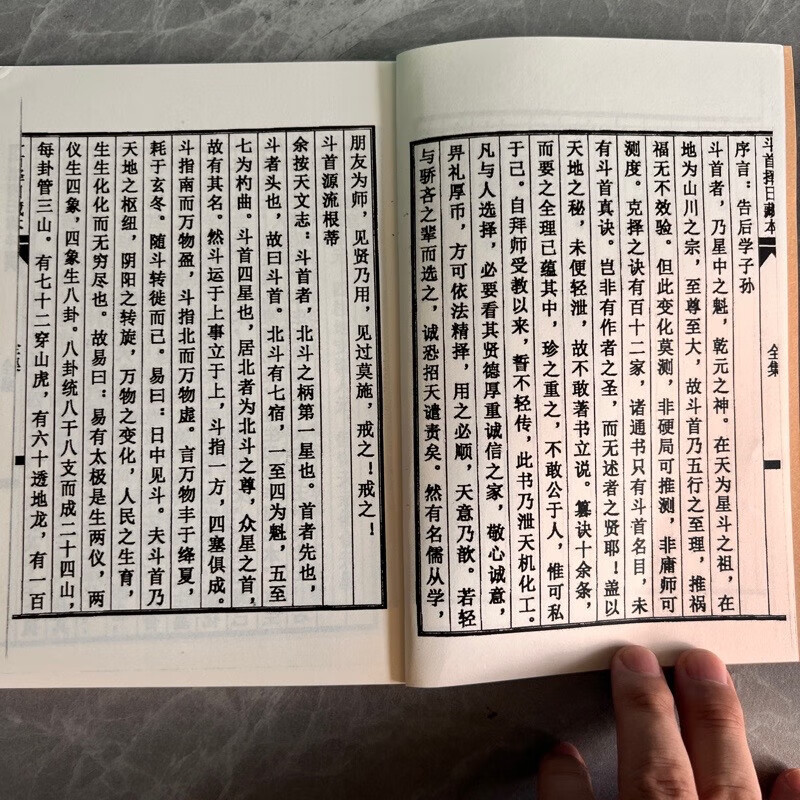 斗首择日藏本
全集
序言：告后学子孙
斗首者，乃星中之魁，乾元之神。在天为星斗之祖，在
地为山川之宗，至尊至大，故斗首乃五行之至理，推祸
福无不效验。但此变化莫测，非硬局可推测，非庸师可
测度。克择之诀有百十二家，诸通书只有斗首名目，未
有斗首真诀。岂非有作者之圣，而无述者之贤耶！盖以
天地之秘，未便轻泄，故不敢著书立说。纂诀十余条，
而要之全理已蕴其中，珍之重之，不敢公于人，惟可私
于己。自拜师受教以来，誓不轻传，此书乃泄天机化工。
凡与人选择，必要看其贤德厚重诚信之家，敬心诚意，
畀礼厚币，方可依法精择，用之必顺，天意乃歆。若轻
与骄吝之辈而选之，诚恐招天谴责矣。然有名儒从学，
朋友为师，见贤乃用，见过莫施，戒之！戒之！
斗首源流根蒂
余按天文志：斗首者，北斗之柄第一星也。首者先也，
斗者头也，故曰斗首。北斗有七宿，一至四为魁，五至
七为杓曲。斗首四星也，居北者为北斗之尊，众星之首，
故有其名。然斗运于上事立于上，斗指一方，四塞俱成。
斗指南而万物盈，斗指北而万物虚。言万物丰于绛夏，
耗于玄冬。随斗转徙而已。易曰：日中见斗。夫斗首乃
天地之枢纽，阴阳之转旋，万物之变化，人民之生育，
生生化化而无穷尽也。故易曰：易有太极是生两仪，两
仪生四象，四象生八卦。八卦统八干八支而成二十四山，
每卦管三山。有七十二穿山虎，有六十透地龙，有一百